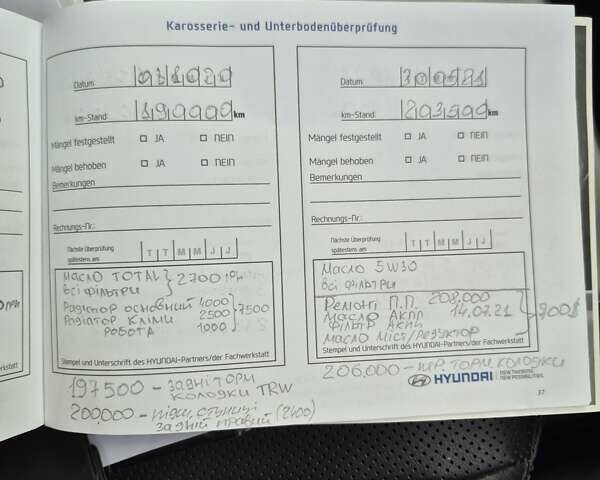 Karosserie- und Unterbodenüberprüfung
Datum:
km-Stand: 199000 km
Mängel festgestellt JA NEIN
Mängel behoben JA NEIN
Bemerkungen
Rechnungs-Nr.:
Nächste Überprüfung
spätestens am: T T M M J J
МАСЛО TOTAL
ВСІ ФІЛЬТРИ } 2700 грн
РАДІАТОР ОСНОВНИЙ 4000
РАДІАТОР КЛІМИ 2500 } 7500
РОБОТА 1000
Stempel und Unterschrift des HYUNDAI-Partners/der Fachwerkstatt
197500 - ЗАДНІ ТОРМ
КОЛОДКИ TRW
200,000 -
ЗАДНІЙ ПРАВИЙ (2400)
Datum: 300521
km-Stand: 203500 km
Mängel festgestellt JA NEIN
Mängel behoben JA NEIN
Bemerkungen
Rechnungs-Nr.:
Nächste Überprüfung
spätestens am: T T M M J J
МАСЛО 5W30
ВСІ ФІЛЬТРИ
РЕМОНТ П.П. 208,000
МАСЛО АКПП 14.07.21
ФІЛЬТР АКПП
МАСЛО
Stempel und Unterschrift des HYUNDAI-Partners/der Fachwerkstatt
206,000 - ПЕР. ТОРМ. КОЛОДКИ
HYUNDAI NEW THINKING. NEW POSSIBILITIES.
37